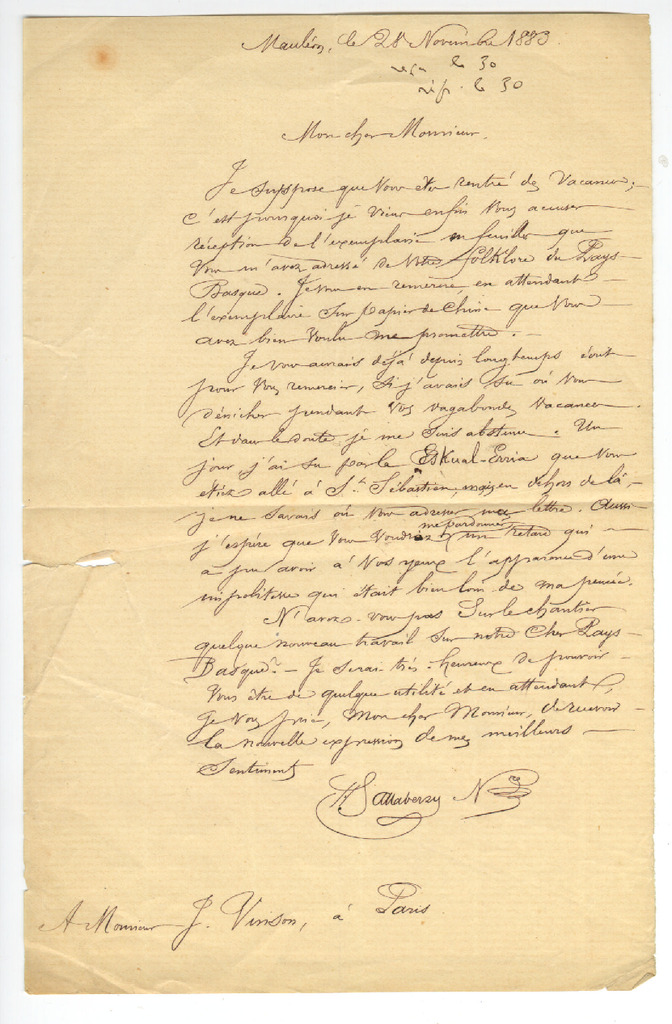 Mauléon, le 28 Novembre 1883
reçu le 30
rép. le 30
Mon cher Monsieur,
Je suppose que vous êtes rentré des vacances ;
c'est pourquoi je viens enfin vous accuser
réception de l'exemplaire en feuilles que
vous m'avez adressé de votre folklore du Pays
Basque. Je vous en remercie, en attendant
l'exemplaire sur papier de Chine que vous
avez bien voulu me promettre. –
Je vous aurais déjà depuis longtemps écrit
pour vous remercier, si j'avais su où vous
dénicher pendant vos vagabondes vacances.
Et dans le doute je me suis abstenu. Un
jour, j'ai su par le Eskual-Erria que vous
étiez allé à St. Sébastien, mais en dehors de là
je ne savais où vous adresser ma lettre. Aussi
j'espère que vous voudrez me pardonner un retard qui
a pu avoir à vos yeux l'apparence d'une
impolitesse qui était bien loin de ma pensée.
N'avez-vous pas sur le chantier
quelque nouveau travail sur notre cher Pays
Basque ? – Je serai très-heureux de pouvoir
vous être de quelque utilité et en attendant,
je vous prie, mon cher Monsieur, de recevoir
la nouvelle expression de mes meilleurs
sentiments
Sallaberry
A Monsieur J. Vinson, à Paris